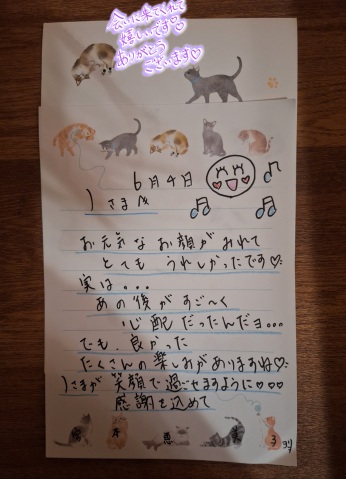 会いに来てくれて
嬉しいです♡
ありがとう
ございます♡
6月4日
Jさまへ
お元気なお顔がみれて
とてもうれしかったです♡
実は...
あの後がすご〜く
心配だったんだヨ...
でも、良かった
たくさんの楽しみがありますね♡
Jさまが笑顔で過ごせますように♡♡♡
感謝を込めて